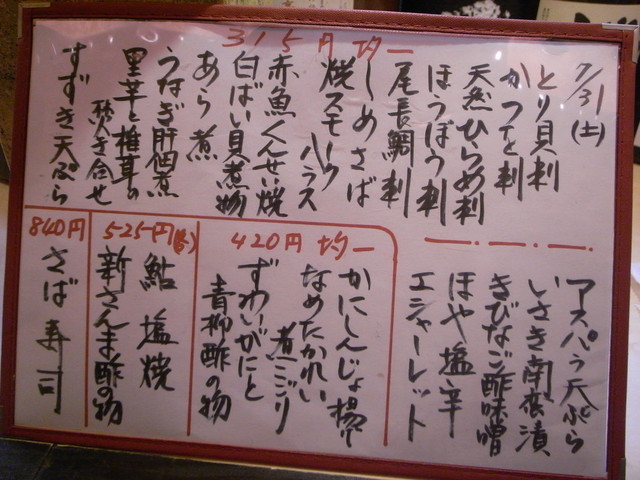 7/31(土)
315円均一
とり貝刺
かつを刺
天然ひらめ刺
ほうぼう刺
尾長鯛刺
しめさば
焼スモークハラス
赤魚くんせい焼
白ばい貝煮物
あら煮
うなぎ肝佃煮
里芋と椎茸の
炊き合せ
すずき天ぷら
アスパラ天ぷら
いさき南蛮漬
きびなご酢味噌
ほや塩辛
エシャーレット
420円均一
かにしんじょ揚げ
なめたかれい
煮こごり
ずわいがにと
青柳酢の物
525円
鮎塩焼
新さんま酢の物
840円
さば寿司